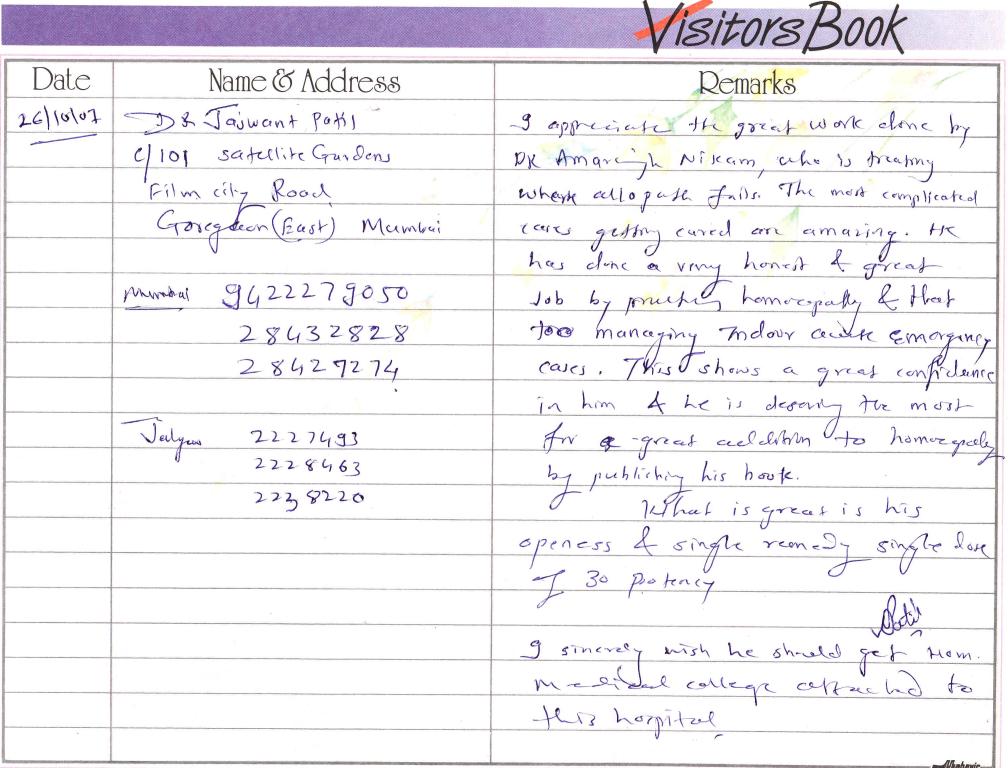 Visitors Book
Date Name & Address Remarks
26/10/07
Dr Jaswant Patil
C/101 Satellite Gardens
Film city Road
Goregaon (East) Mumbai
Mumbai 9422279050
28432828
28427274
Jalgaon 2227493
2228463
2238220
I appreciate the great work done by
DR Amarsingh Nikam, who is treating
where allopath fails. The most complicated
cases getting cured are amazing. He
has done a very honest & great
Job by practising homoeopathy & that
too managing Indoor acute emergency
cases. This shows a great confidence
in him & he is deserving the most
for a great addition to homoeopathy
by publishing his book.
What is great is his
openess & single remedy single dose
of 30 potency
Patil
I sincerely wish he should get Hom.
Medical college attached to
this hospital